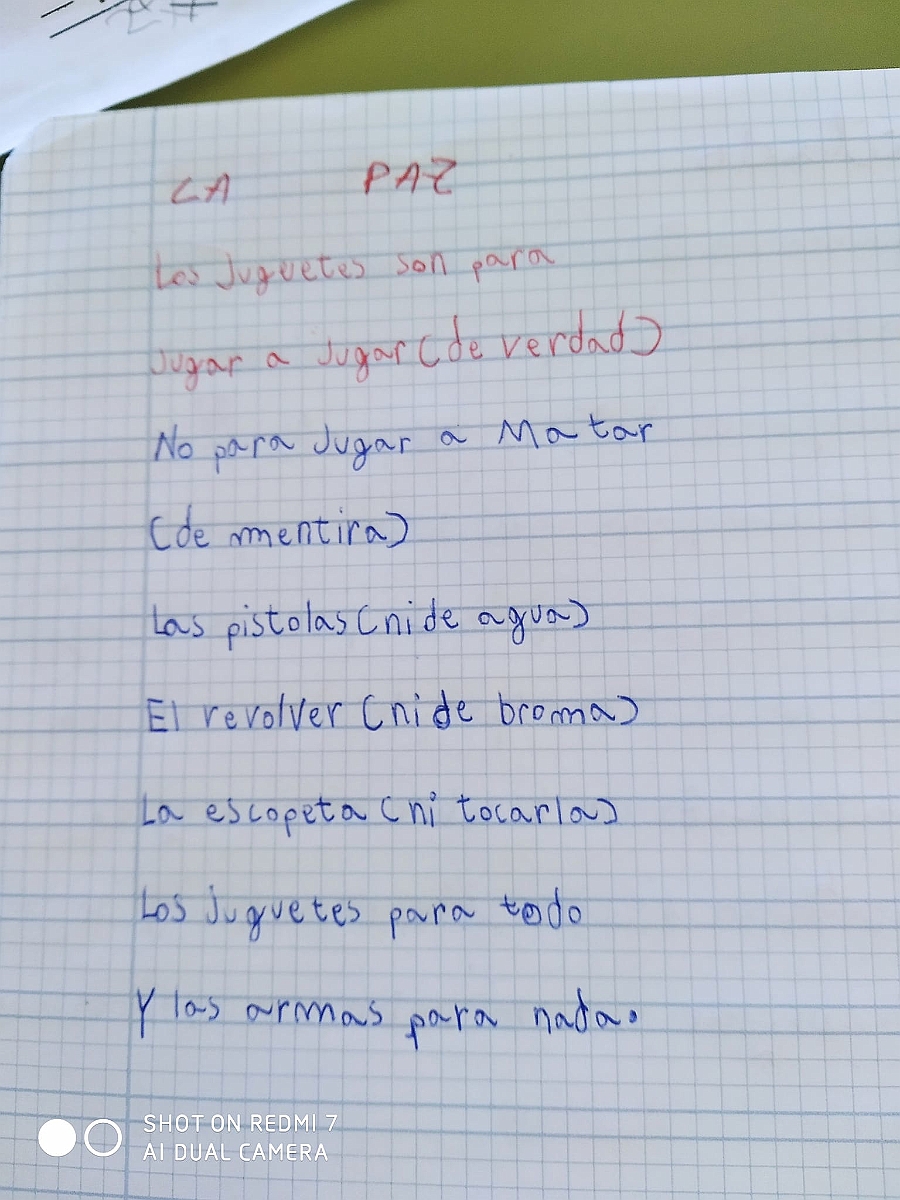 LA PAZ
Los Juguetes son para
Jugar a Jugar (de verdad)
No para Jugar a Matar
(de mentira)
Las pistolas (ni de agua)
El revolver (ni de broma)
La escopeta (ni tocarla)
Los Juguetes para todo
Y las armas para nada.
SHOT ON REDMI 7
AI DUAL CAMERA